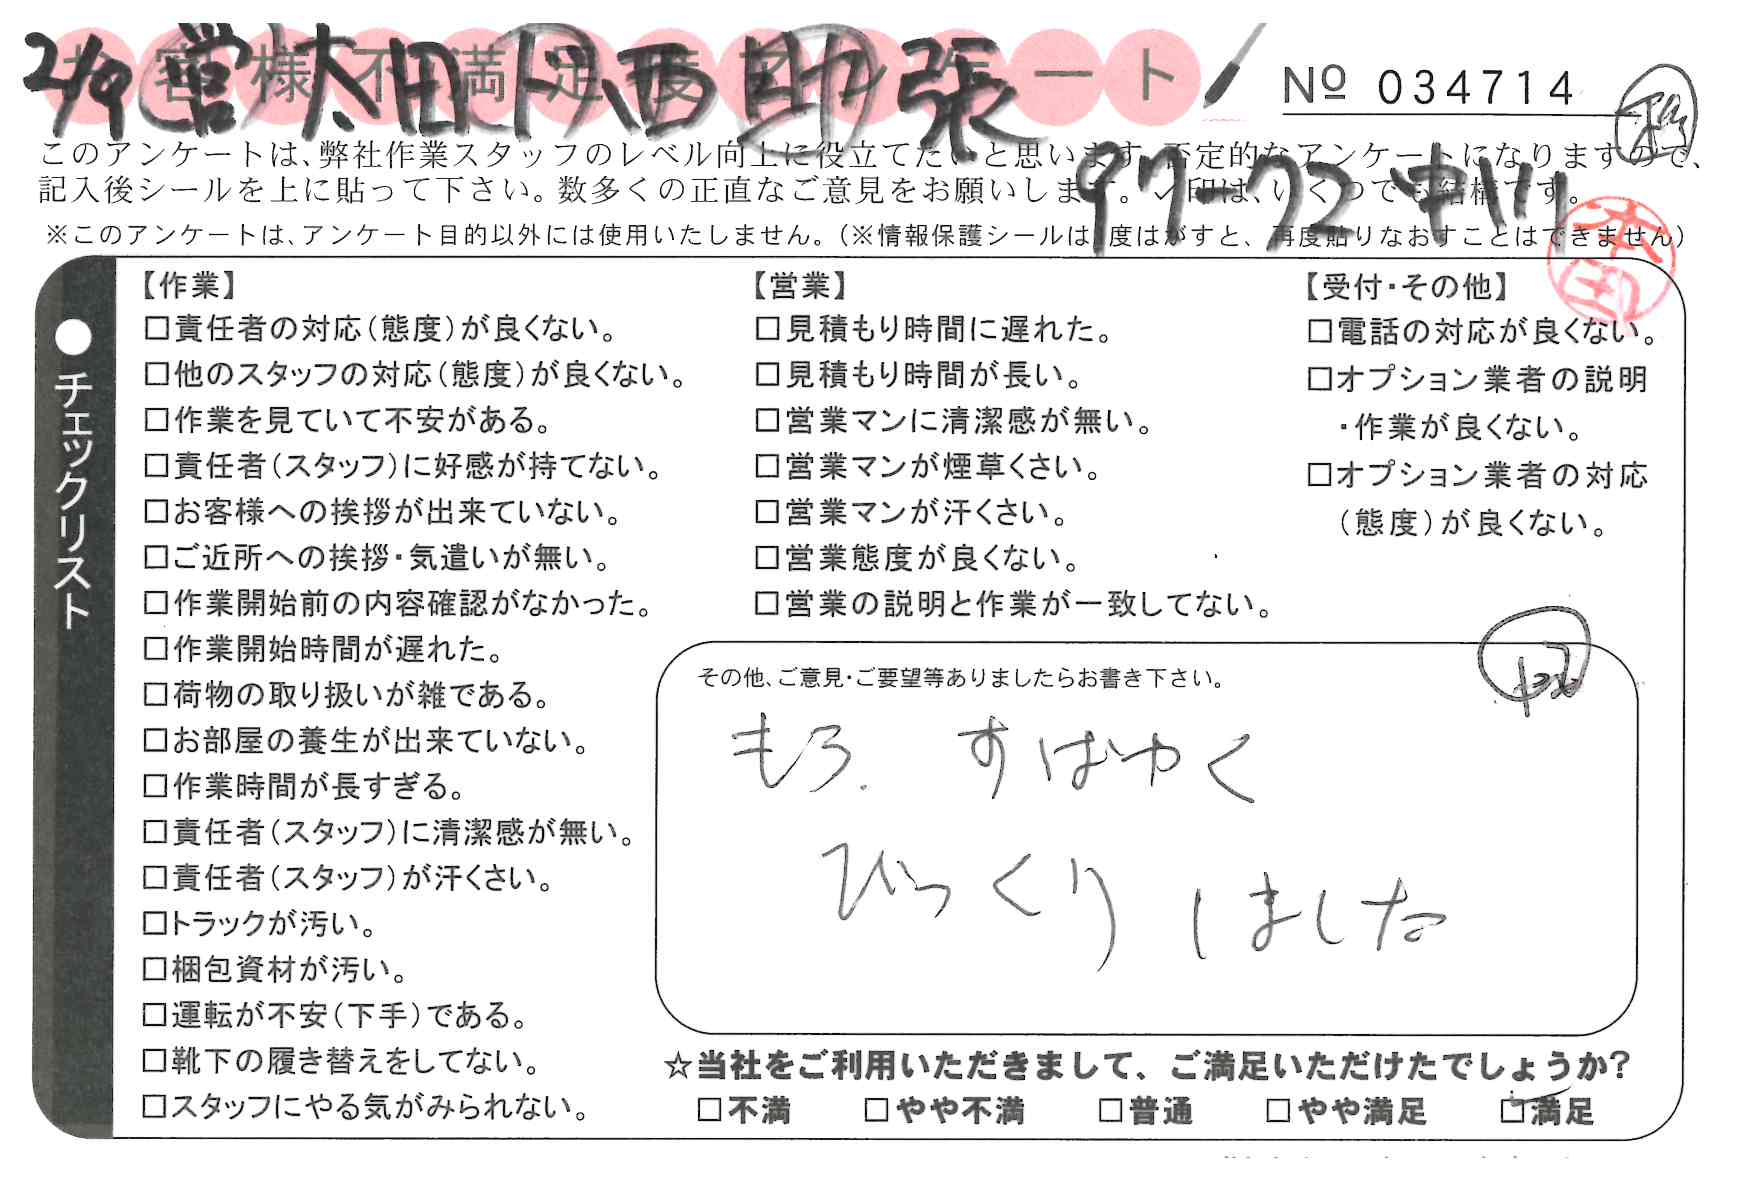 お客様不満足度アンケート
2/9 営 太田 西 助 張
No 034714
このアンケートは、弊社作業スタッフのレベル向上に役立てたいと思います。否定的なアンケートになりますので、
記入後シールを上に貼って下さい。数多くの正直なご意見をお願いします。✓印は、いくつでも結構です。
97-72 中川
※このアンケートは、アンケート目的以外には使用いたしません。（※情報保護シールは1度はがすと、再度貼りなおすことはできません）
本田
●チェックリスト
【作業】
□責任者の対応（態度）が良くない。
□他のスタッフの対応（態度）が良くない。
□作業を見ていて不安がある。
□責任者（スタッフ）に好感が持てない。
□お客様への挨拶が出来ていない。
□ご近所への挨拶・気遣いが無い。
□作業開始前の内容確認がなかった。
□作業開始時間が遅れた。
□荷物の取り扱いが雑である。
□お部屋の養生が出来ていない。
□作業時間が長すぎる。
□責任者（スタッフ）に清潔感が無い。
□責任者（スタッフ）が汗くさい。
□トラックが汚い。
□梱包資材が汚い。
□運転が不安（下手）である。
□靴下の履き替えをしてない。
□スタッフにやる気がみられない。
【営業】
□見積もり時間に遅れた。
□見積もり時間が長い。
□営業マンに清潔感が無い。
□営業マンが煙草くさい。
□営業マンが汗くさい。
□営業態度が良くない。
□営業の説明と作業が一致してない。
【受付・その他】
□電話の対応が良くない。
□オプション業者の説明
・作業が良くない。
□オプション業者の対応
（態度）が良くない。
その他、ご意見・ご要望等ありましたらお書き下さい。
もろ. すばやく
びっくりしました
☆当社をご利用いただきまして、ご満足いただけたでしょうか?
□不満 □やや不満 □普通 □やや満足 □満足